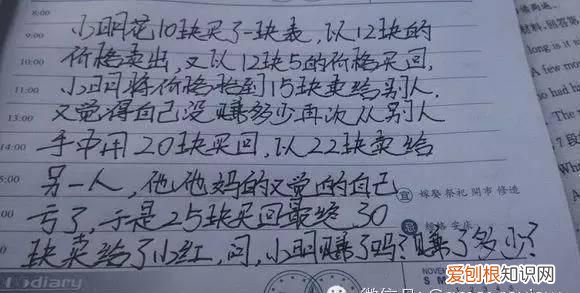 8:00
小明花10块买了一块表，以12块的
10:00 价格卖出，又以12块5的价格买回，
11:00 小明将价格抬到15块卖给别人，
13:00 又觉得自己没赚多少再次从别人
14:00 手中用20块买回，以22块卖给
5:00 另一人，他他妈的又觉的自己
宜 嫁娶 祭祀 开市 修造
亏了，于是25块买回最终30
忌
块卖给了小红，问，小明赚了吗？赚了多少？
diary
NOVEM
S M
材料,回答
long is it
A few mo
so had h
The
7.段
Wh
爱刨根知识网
www.